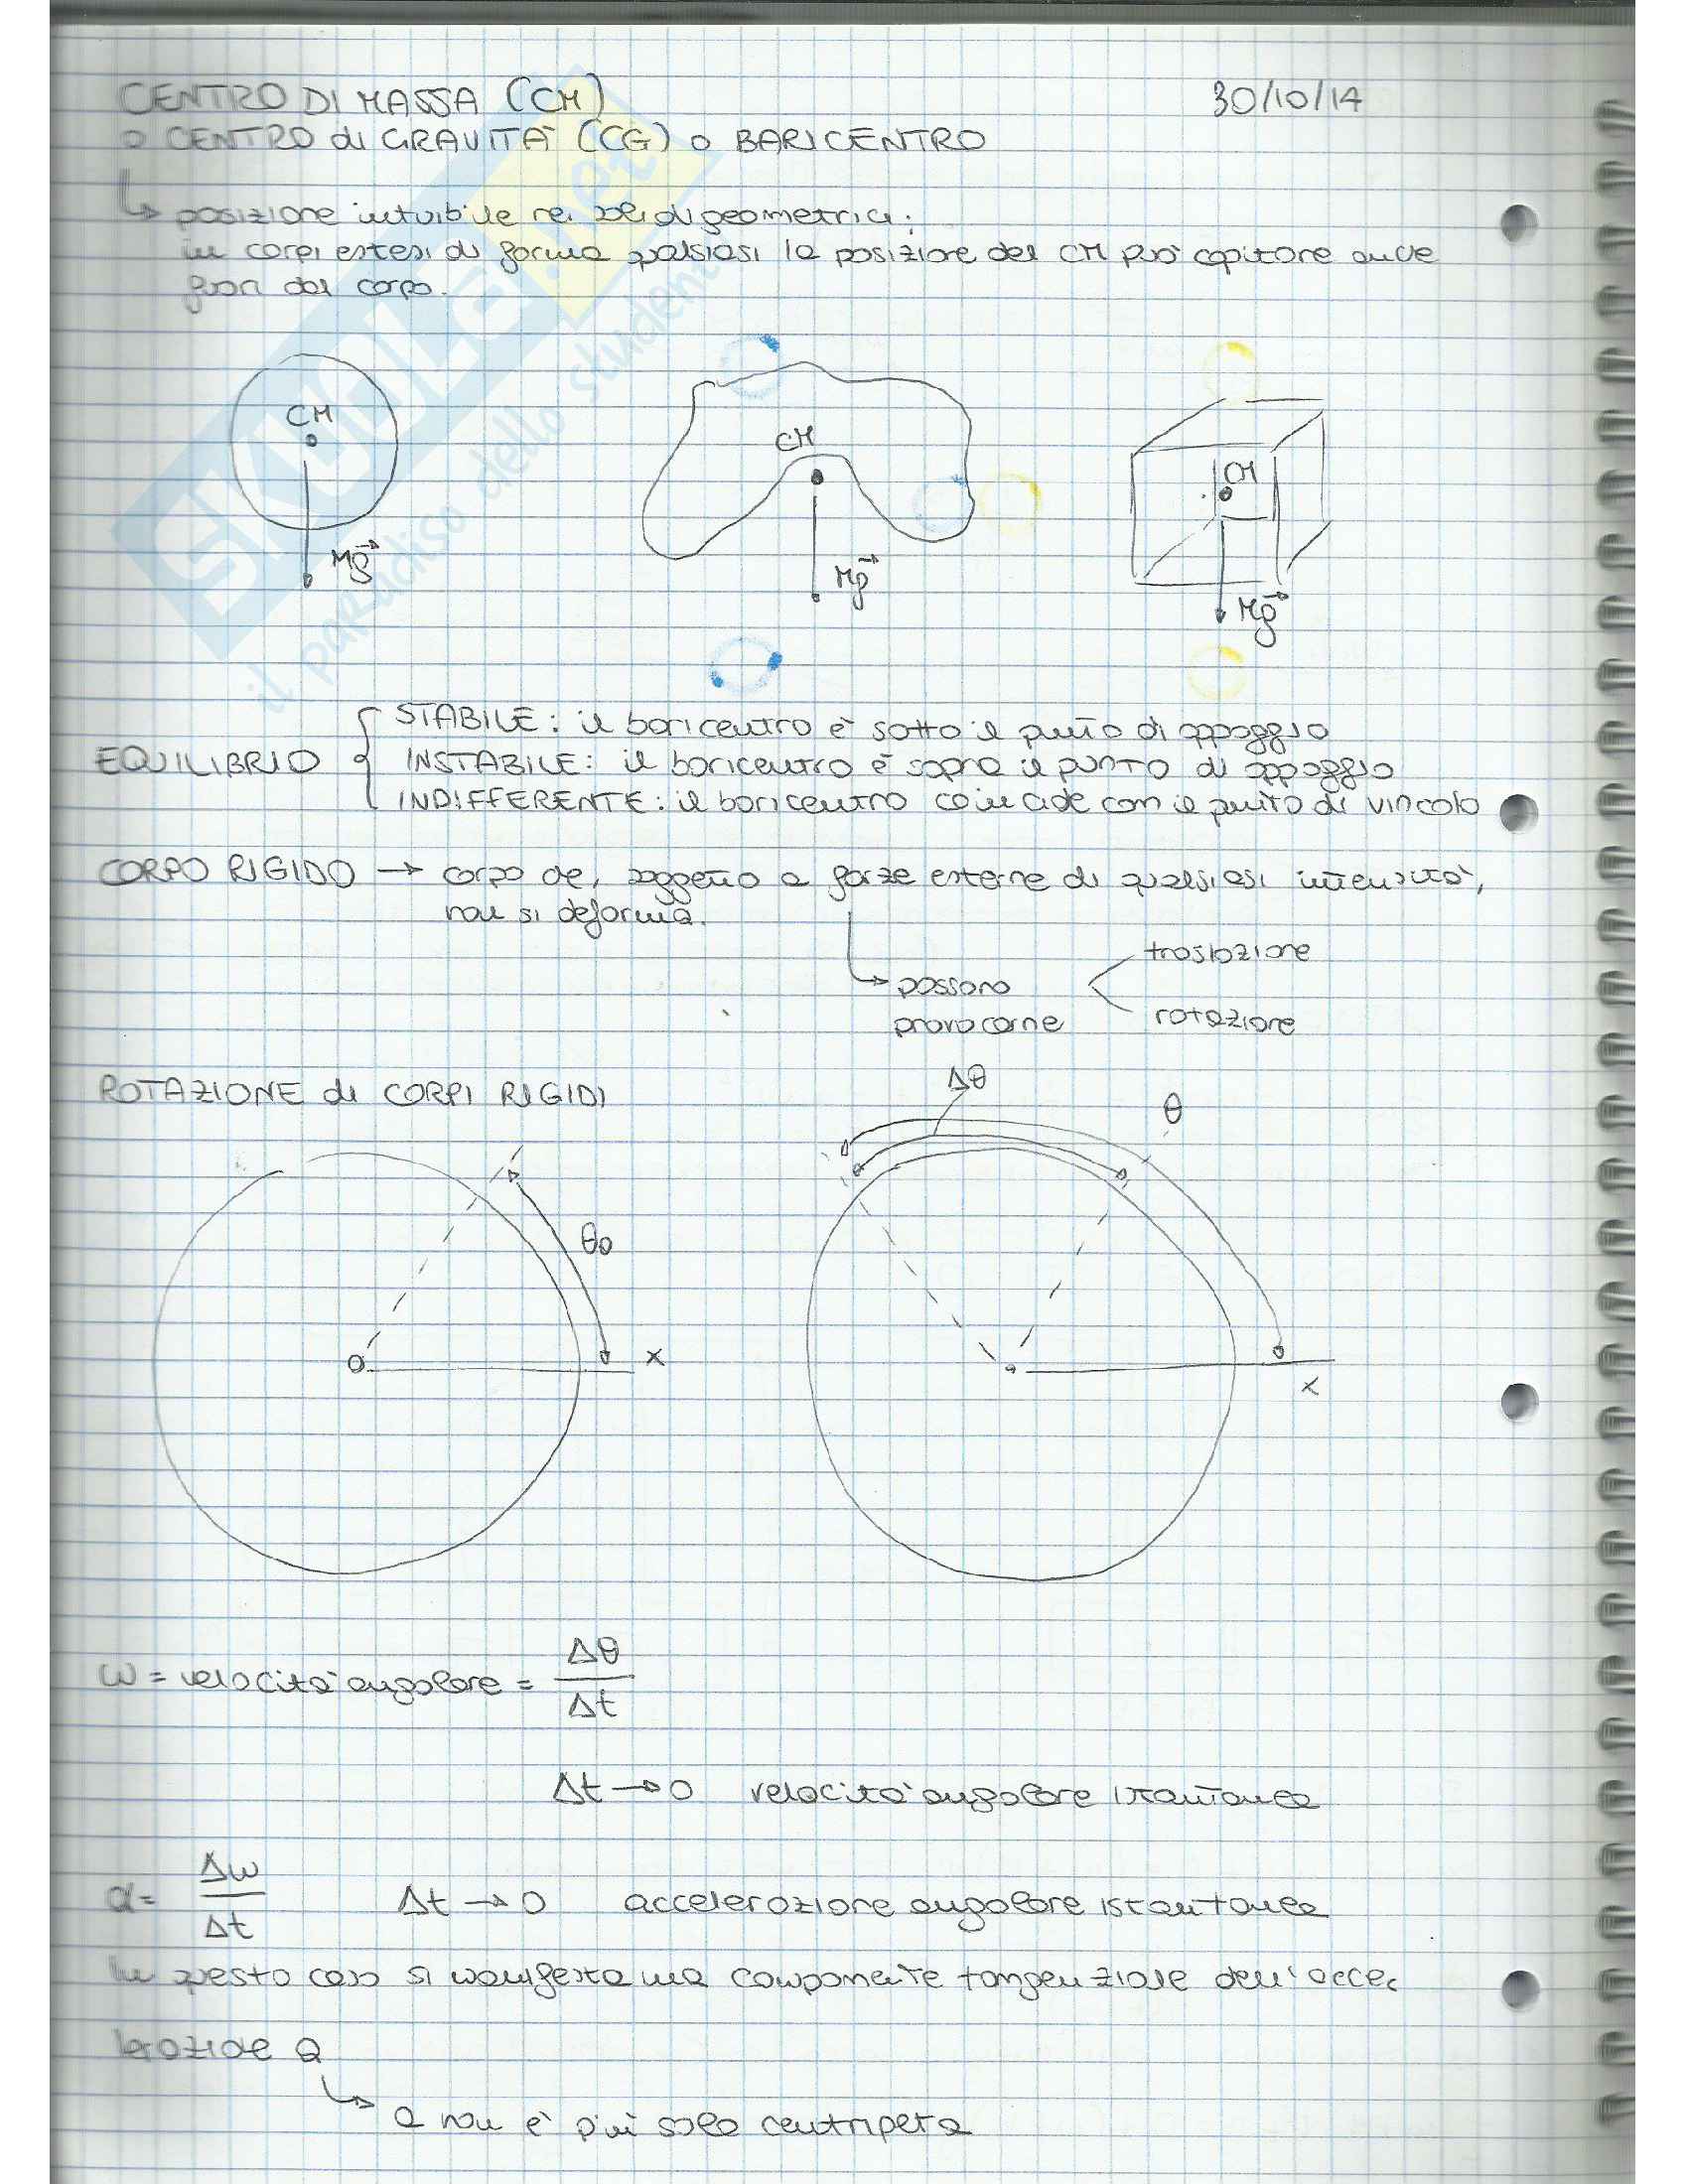 CENTRO DI MASSA (CM)
30/10/14
o CENTRO di GRAVITÀ (CG) o BARICENTRO
↳ posizione intuibile nei solidi geometrici;
in corpi estesi di forma qualsiasi la posizione del CM può capitare anche
fuori dal corpo.
CM
Mg⃗
CM
Mg⃗
CM
Mg⃗
SKUOLA.net
il paradiso dello studente
EQUILIBRIO
STABILE: il baricentro è sotto il punto di appoggio
INSTABILE: il baricentro è sopra il punto di appoggio
INDIFFERENTE: il baricentro coincide con il punto di vincolo
CORPO RIGIDO → corpo che, soggetto a forze esterne di qualsiasi intensità,
non si deforma.
↳ possono
provocarne
traslazione
rotazione
ROTAZIONE di CORPI RIGIDI
Δθ
θ
θ0
O
x
x
ω = velocità angolare = Δθ/Δt
Δt → 0 velocità angolare istantanea
α = Δω/Δt Δt → 0 accelerazione angolare istantanea
In questo caso si manifesta una componente tangenziale dell'acce
lerazione a
↳ a non è più solo centripeta